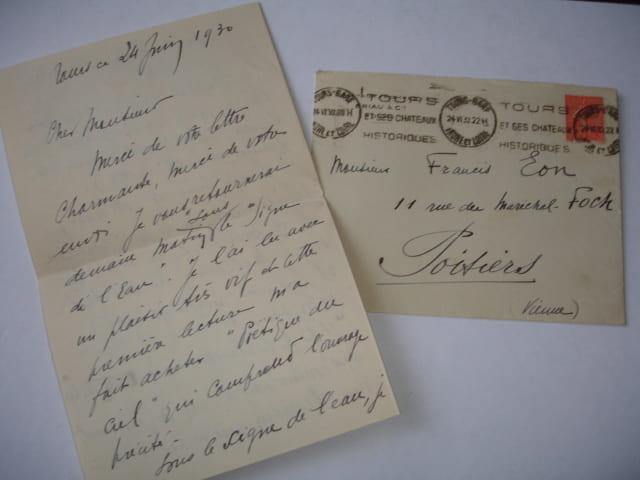 Tours ce 24 Juin 1930
Cher Monsieur
Merci de votre lettre
Charmante, merci de votre
envoi. Je vous retournerai
demain matin le "Sous le Signe
de l'Eau". Je l'ai lu avec
un plaisir très vif et cette
première lecture m'a
fait acheter "Poétique du
ciel" qui comprend l'ouvrage
précité.
Sous le signe de l'eau, je
TOURS-GARE
INDRE ET LOIRE
TOURS
ET SES CHATEAUX
HISTORIQUES
TOURS-GARE
INDRE ET LOIRE
TOURS
ET SES CHATEAUX
HISTORIQUES
Monsieur Francis Eon
11 rue du Maréchal-Foch
Poitiers
(Vienne)